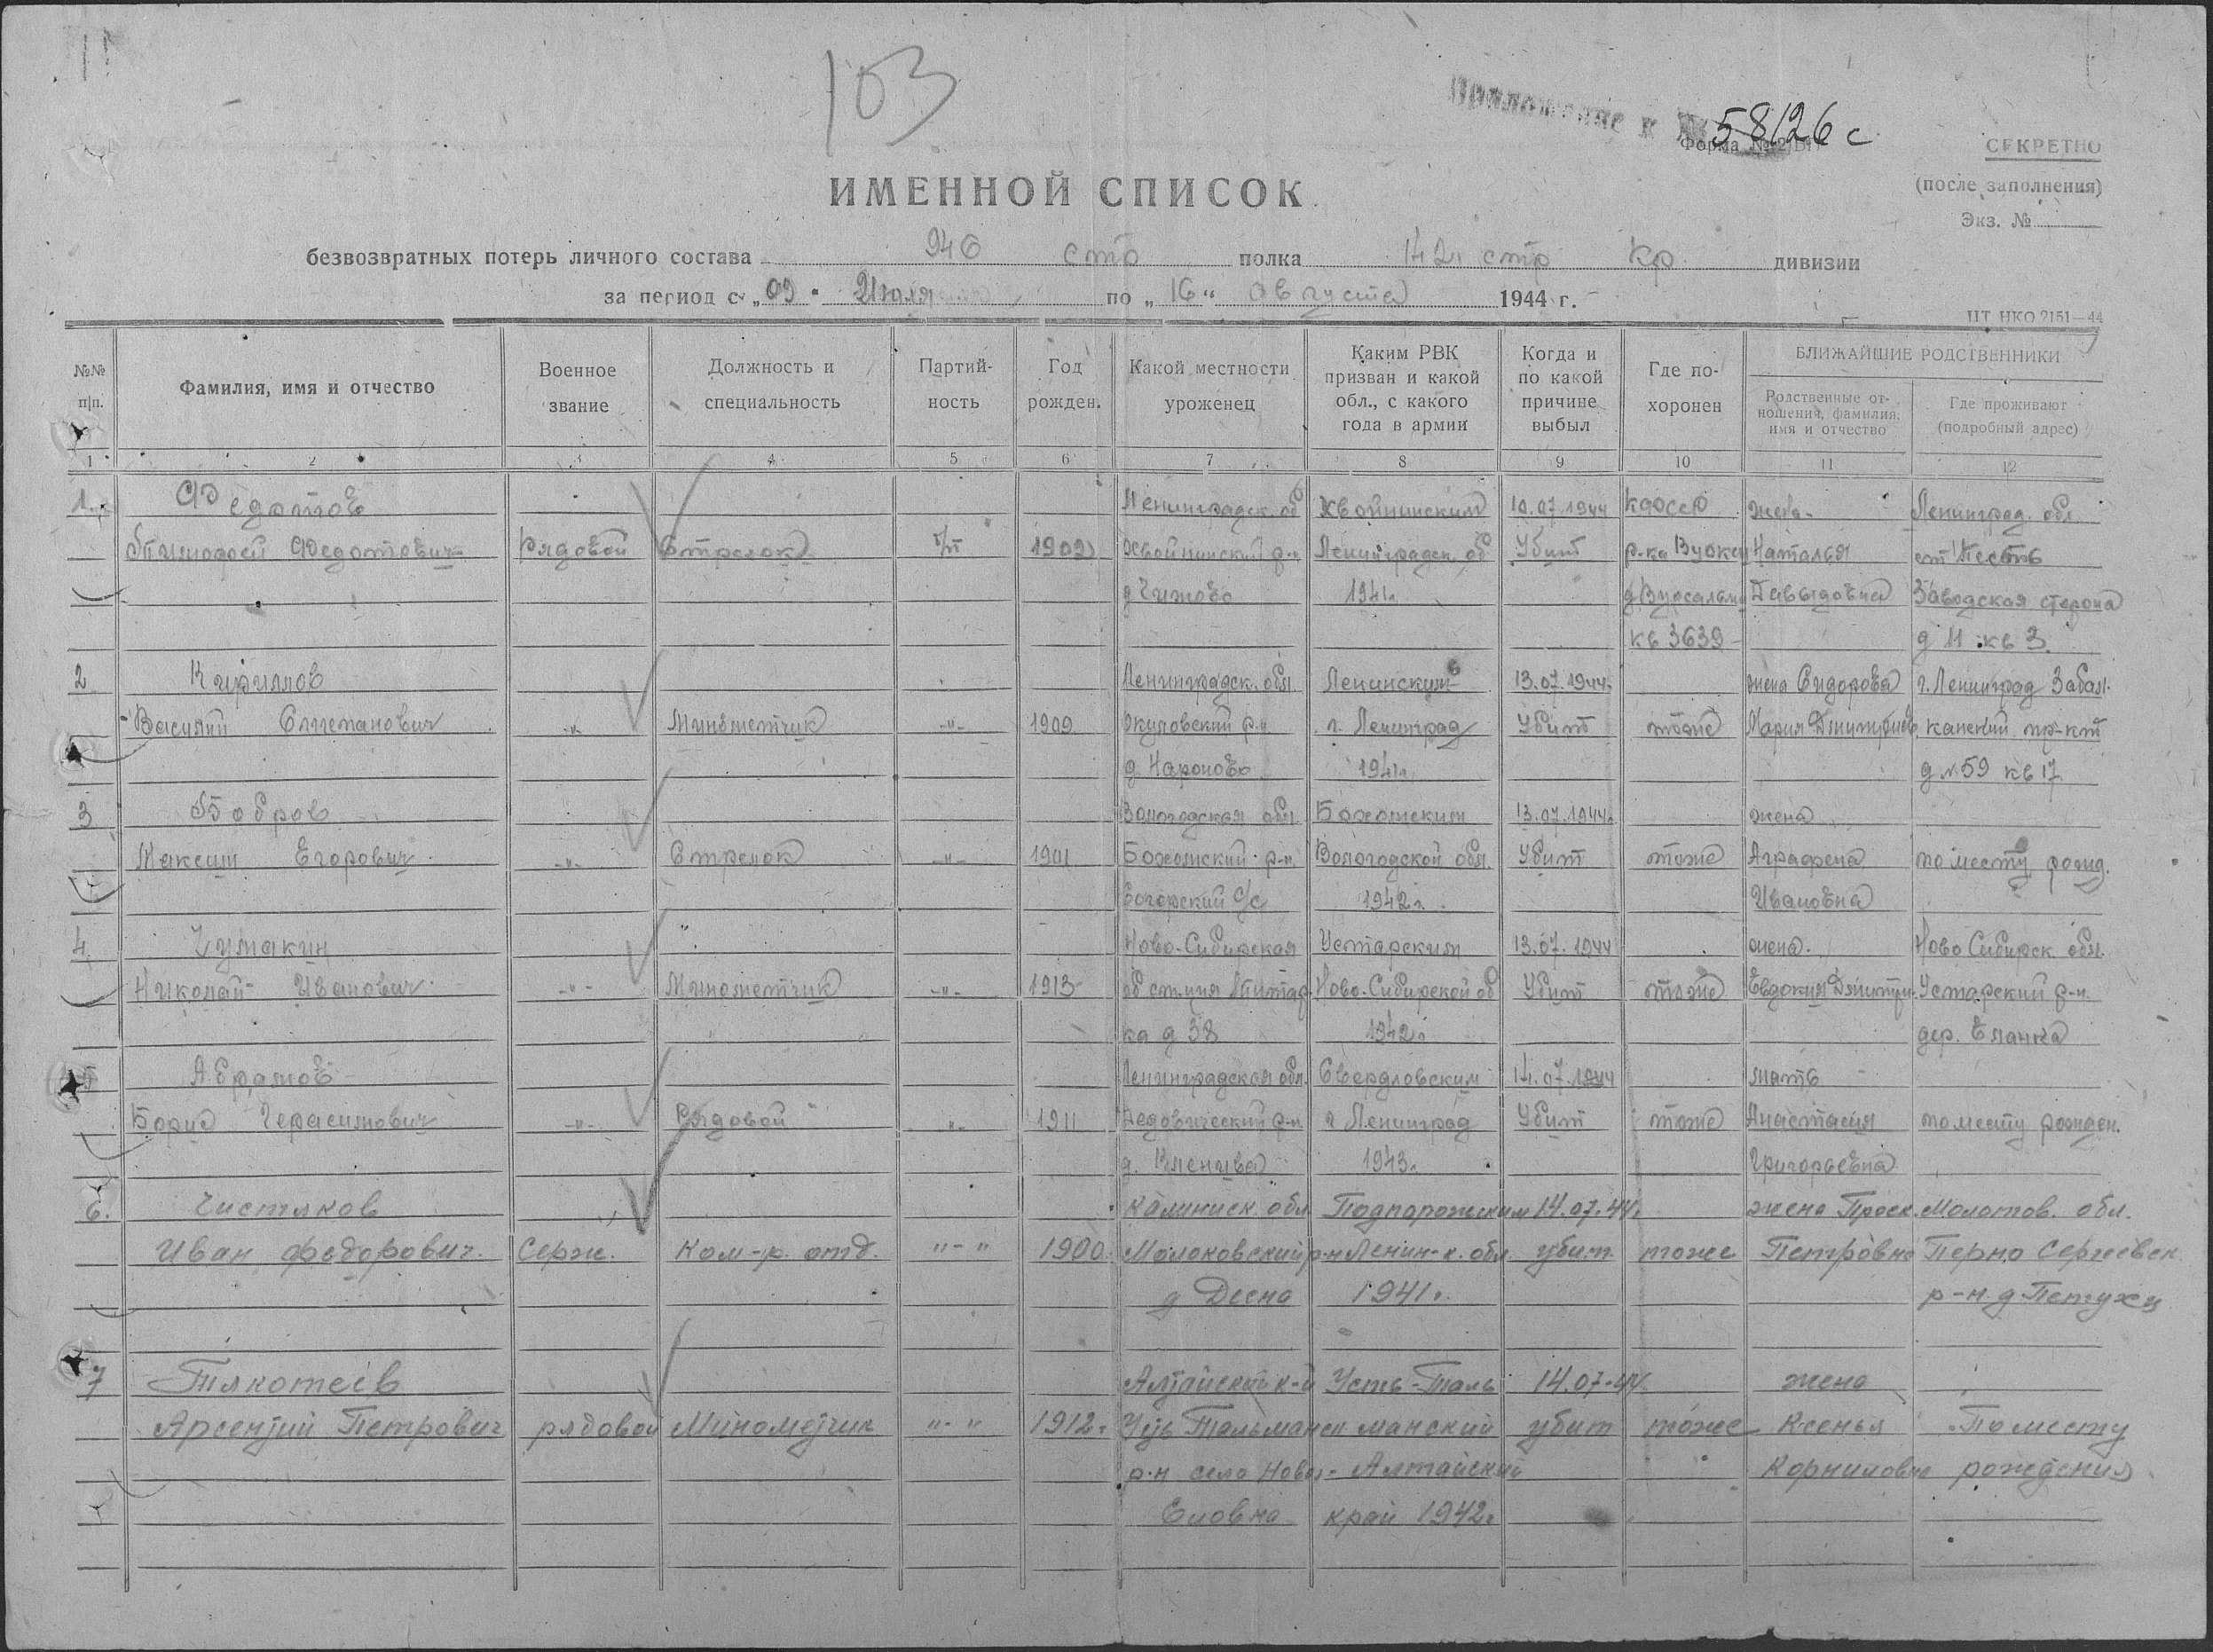 103
Приложение к № 58126с
Форма № 2/БП
СЕКРЕТНО
(после заполнения)
Экз. №
ИМЕННОЙ СПИСОК
безвозвратных потерь личного состава 946 стр полка 142 стр кр. дивизии
за период с „09" Июля по „16" августа 1944 г.
ЦТ НКО 2151—44
№№ п|п.
Фамилия, имя и отчество
Военное звание
Должность и специальность
Партий-ность
Год рожден.
Какой местности уроженец
Каким РВК призван и какой обл., с какого года в армии
Когда и по какой причине выбыл
Где по-хоронен
БЛИЖАЙШИЕ РОДСТВЕННИКИ
Родственные от-ношения, фамилия, имя и отчество
Где проживают (подробный адрес)
1 2 3 4 5 6 7 8 9 10 11 12
1. Федотов Ленинградск. об Хвойнинским 10.07.1944 КФССР жена Ленинград. обл.
Тимофей Федотович Рядовой Стрелок б/п 1909 Хвойнинский р-н Ленинградск. об Убит р-ка Вуокси Наталья ст
д Чижово 1941г. Давыдовна Заводская сторона
кв 3639 д 11 кв 3.
2 Кириллов Ленинградск. обл. Ленинским 13.07.1944г. жена Сидорова г. Ленинград Забал-
Василий Степанович -"- Минометчик -"- 1909 Окуловский р-н г. Ленинград Убит тоже Мария Дмитриев. канский пр-кт
д 1941г. д №59 кв 17
3 Бобров Вологодская обл. 13.07.1944г. жена
Максим Егорович -"- Стрелок -"- 1901 р-н Вологодской обл. Убит тоже Аграфена по месту рожд.
с/с 1942г. Ивановна
4. Чумакин Ново-Сибирская Устарским 13.07.1944 жена. Ново Сибирск. обл.
Николай Иванович -"- Минометчик -"- 1913 об Ново-Сибирской об Убит тоже Евдокия Дмитри- Устарский р-н.
ка д 38 1942г. дер. Еланка
5 Абрамов Ленинградская обл. Свердловским 14.07.1944 мать
Борис Герасимович -"- Рядовой -"- 1911 Дедовический р-н г Ленинград Убит тоже Анастасия по месту рожден.
д. 1943г. Григорьевна
6. Чистяков Калининск. обл Подпорожским 14.07.44. жена Праск. Молотов. обл.
Иван Федорович. Серж. Ком-р. отд. "-" 1900. Молоковский р-н Ленин-к. обл. убит тоже Петровна Сергеевск
д Десна 1941г. р-н. д Петухи
7 Алтайский к-й Усть-Таль 14.07.44. жена
Арсентий Петрович рядовой Минометчик "-" 1912г. Усть Тальманск манский убит тоже Ксенья По месту
р-н село Ново- Алтайский Корниловна рождения
Еловка край 1942г